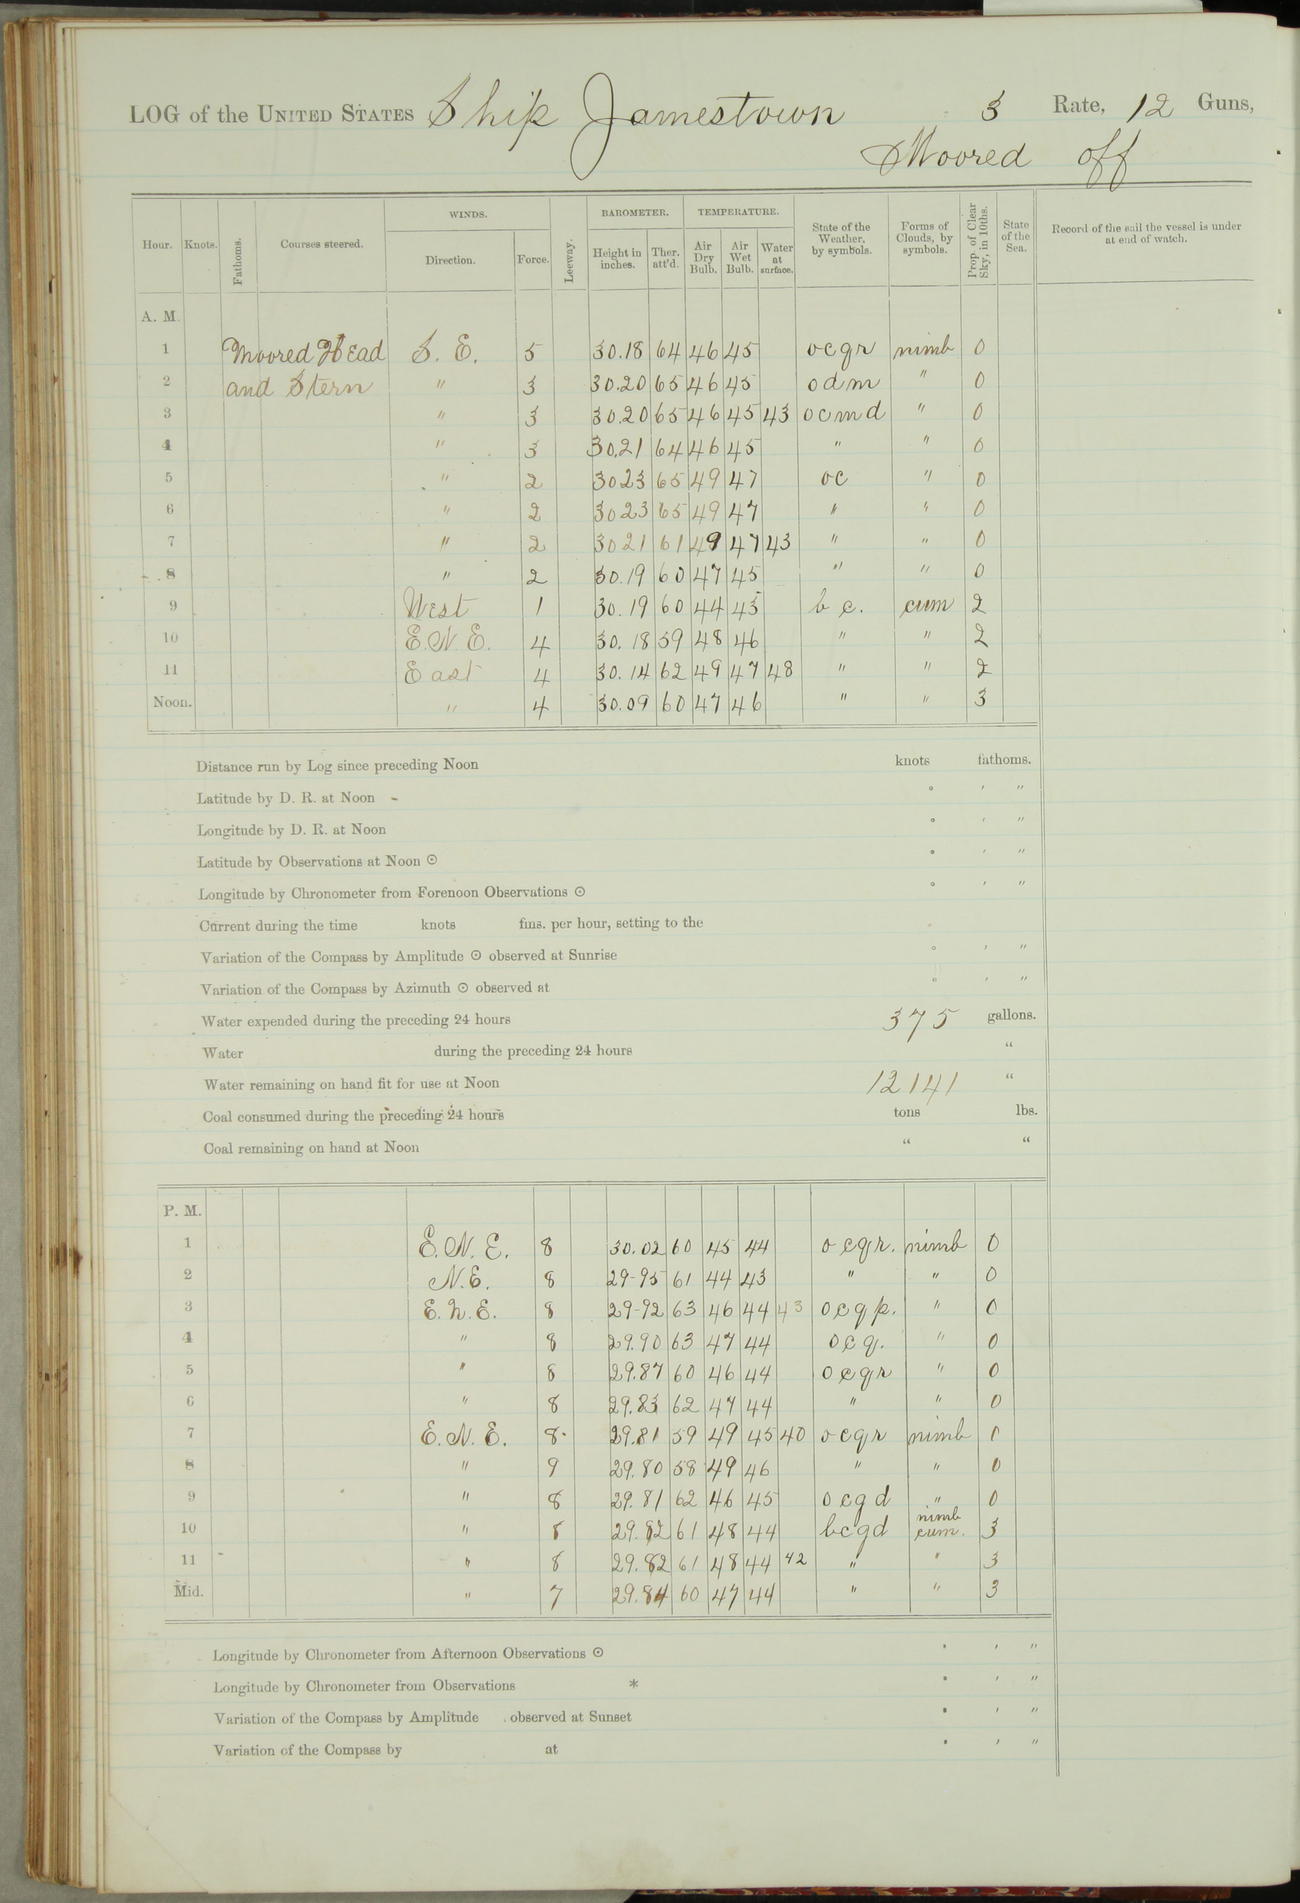 LOG of the UNITED STATES Ship Jamestown 3 Rate, 12 Guns,
Moored off
Hour. Knots. Fathoms. Courses steered. WINDS. Direction. Force. Leeway. BAROMETER. Height in inches. Ther. att'd. TEMPERATURE. Air Dry Bulb. Air Wet Bulb. Water at surface. State of the Weather, by symbols. Forms of Clouds, by symbols. Prop. of Clear Sky, in 10ths. State of the Sea. Record of the sail the vessel is under at end of watch.
A. M.
1 Moored Head S. E. 5 30.18 64 46 45 ocqr nimb 0
2 and Stern " 3 30.20 65 46 45 odm " 0
3 " 3 30.20 65 46 45 43 ocmd " 0
4 " 3 30.21 64 46 45 " " 0
5 " 2 3023 65 49 47 oc " 0
6 " 2 3023 65 49 47 " " 0
7 " 2 3021 61 49 47 43 " " 0
8 " 2 30.19 60 47 45 " " 0
9 West 1 30.19 60 44 43 b c. cum 2
10 E.N.E. 4 30.18 59 48 46 " " 2
11 East 4 30.14 62 49 47 48 " " 2
Noon. " 4 30.09 60 47 46 " " 3
Distance run by Log since preceding Noon knots fathoms.
Latitude by D. R. at Noon - ° ′ ″
Longitude by D. R. at Noon ° ′ ″
Latitude by Observations at Noon ⊙ ° ′ ″
Longitude by Chronometer from Forenoon Observations ⊙ ° ′ ″
Current during the time knots fms. per hour, setting to the
Variation of the Compass by Amplitude ⊙ observed at Sunrise ° ′ ″
Variation of the Compass by Azimuth ⊙ observed at ° ′ ″
Water expended during the preceding 24 hours 375 gallons.
Water during the preceding 24 hours "
Water remaining on hand fit for use at Noon 12141 "
Coal consumed during the preceding 24 hours tons lbs.
Coal remaining on hand at Noon " "
P. M.
1 E.N.E. 8 30.02 60 45 44 ocqr. nimb 0
2 N.E. 8 29-95 61 44 43 " " 0
3 E.N.E. 8 29-92 63 46 44 43 ocqp. " 0
4 " 8 29.90 63 47 44 ocq. " 0
5 " 8 29.87 60 46 44 ocqr " 0
6 " 8 29.83 62 47 44 " " 0
7 E.N.E. 8 29.81 59 49 45 40 ocqr nimb 0
8 " 9 29.80 58 49 46 " " 0
9 " 8 29.81 62 46 45 ocqd " 0
10 " 8 29.82 61 48 44 bcqd nimb cum. 3
11 " 8 29.82 61 48 44 42 " " 3
Mid. " 7 29.84 60 47 44 " " 3
Longitude by Chronometer from Afternoon Observations ⊙ ° ′ ″
Longitude by Chronometer from Observations * ° ′ ″
Variation of the Compass by Amplitude observed at Sunset ° ′ ″
Variation of the Compass by at ° ′ ″